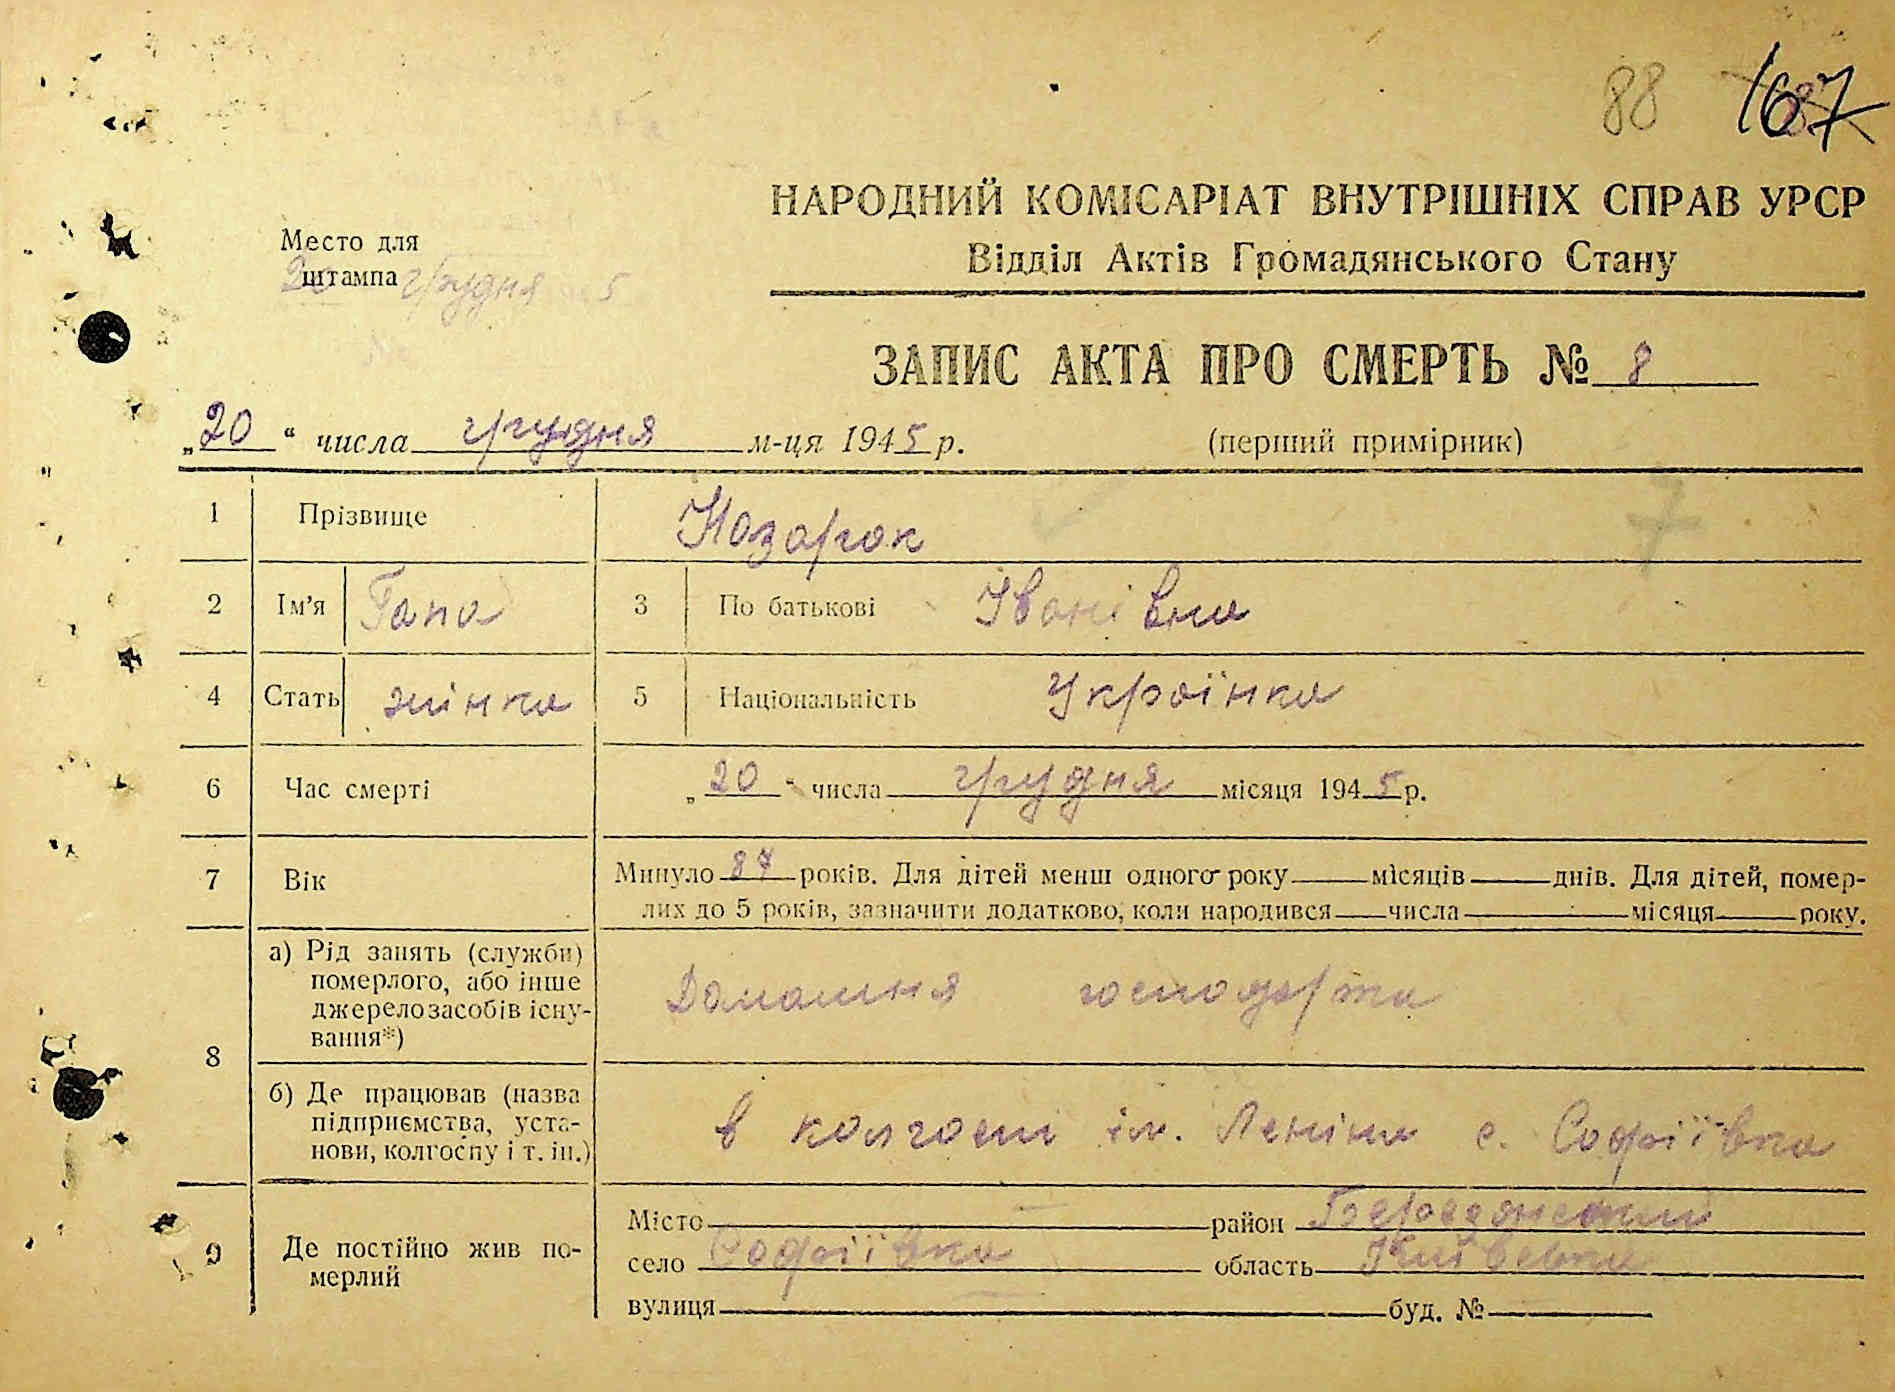 88 167
НАРОДНИЙ КОМІСАРІАТ ВНУТРІШНІХ СПРАВ УРСР
Відділ Актів Громадянського Стану
Место для
штампа
20 грудня 5
ЗАПИС АКТА ПРО СМЕРТЬ № 8
„20“ числа грудня м-ця 1945 р. (перший примірник)
1 Прізвище Назарок
7
2 Ім'я Гапа 3 По батькові Іванівна
4 Стать жінка 5 Національність Українка
6 Час смерті „20“ числа грудня місяця 1945 р.
7 Вік Минуло 87 років. Для дітей менш одного року місяців днів. Для дітей, помер-
лих до 5 років, зазначити додатково, коли народився числа місяця року.
8 а) Рід занять (служби)
померлого, або інше
джерело засобів існу-
вання*)
Домашня господарка
б) Де працював (назва
підприємства, уста-
нови, колгоспу і т. ін.)
в колгоспі ім. Леніна с. Софіївка
9 Де постійно жив по-
мерлий
Місто район Бородянський
село Софіївка область Київська
вулиця буд. №